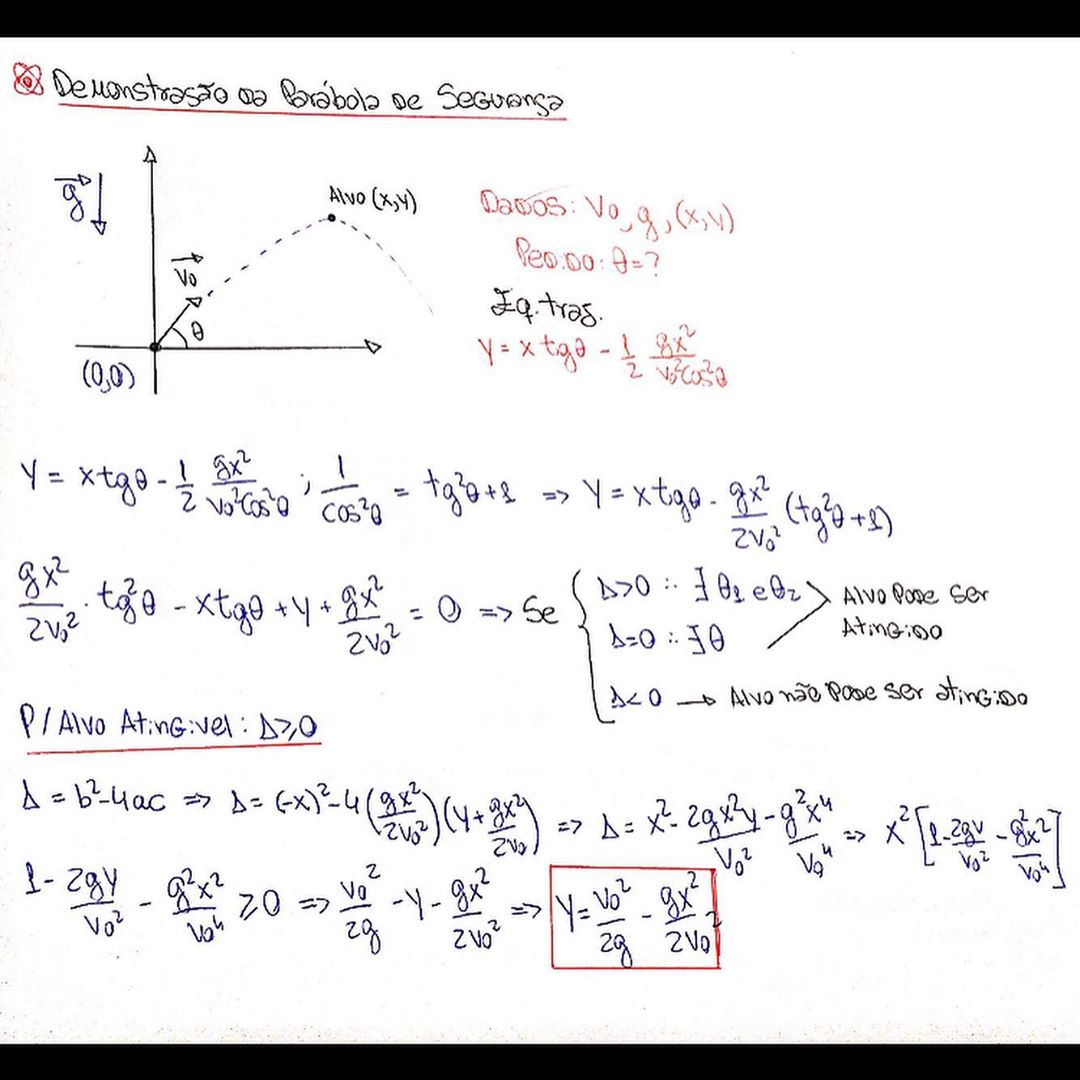 Demonstração da Parábola de Segurança
g
Alvo (x,y)
V₀
θ
(0,0)
Dados: V₀, g, (x,y)
Pedido: θ=?
Eq. traj.
Y = x tgθ - 1/2 gx²/V₀²cos²θ
Y = x tgθ - 1/2 gx²/V₀²cos²θ ; 1/cos²θ = tg²θ+1 => Y = x tgθ - gx²/2V₀² (tg²θ+1)
gx²/2V₀² . tg²θ - x tgθ + y + gx²/2V₀² = 0 => Se
Δ>0 ∴ ∃ θ₁ e θ₂
Δ=0 ∴ ∃ θ
Alvo Pode ser
Atingido
Δ<0 → Alvo não Pode ser atingido
P/ Alvo Atingivel: Δ≥0
Δ = b²-4ac => Δ = (-x)² - 4(gx²/2V₀²)(y + gx²/2V₀) => Δ = x² - 2gx²y/V₀² - g²x⁴/V₀⁴ => x²[1 - 2gy/V₀² - g²x²/V₀⁴]
1 - 2gy/V₀² - g²x²/V₀⁴ ≥ 0 => V₀²/2g - y - gx²/2V₀² => Y = V₀²/2g - gx²/2V₀²